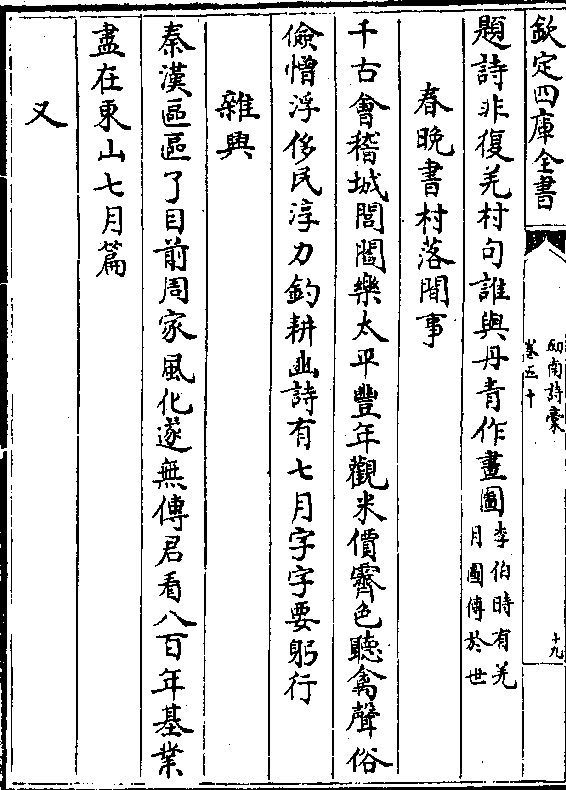 欽定四庫全書
劒南詩稾
卷五十
十九
題詩非復羌村句誰與丹青作畫圖
李伯時有羌
月圖傳於世
春晚書村落閒事
千古會稽城閭閻樂太平豐年觀米價霽色聽禽聲俗
儉憎浮侈民淳力釣耕豳詩有七月字字要躬行
雜興
秦漢區區了目前周家風化遂無傳君看八百年基業
盡在東山七月篇
又